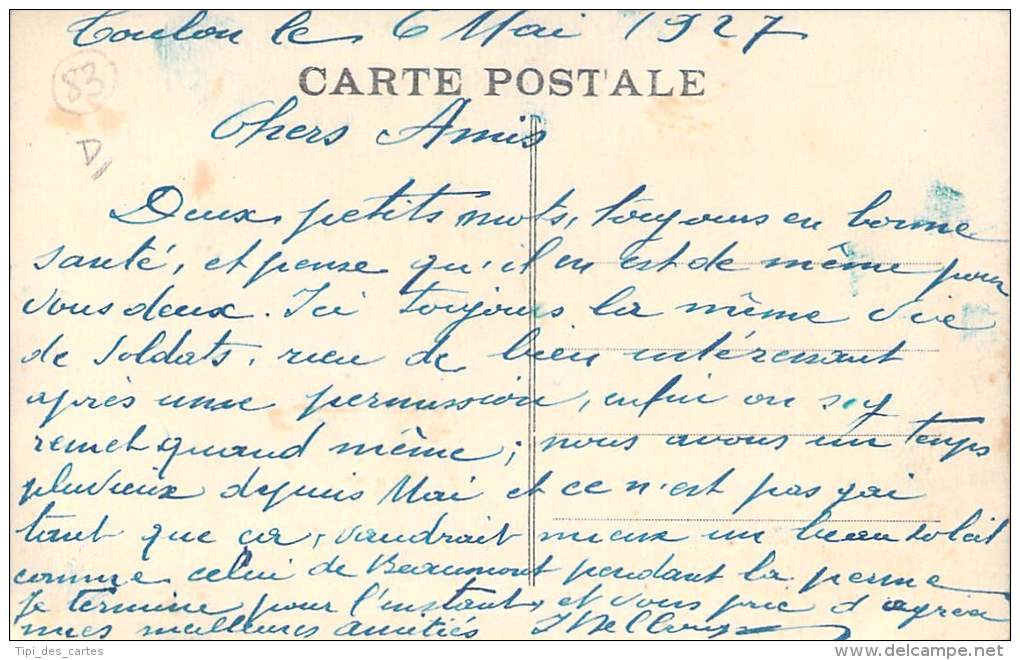 Toulon le 6 Mai 1927
83
CARTE POSTALE
Chers Amis
D
Deux petits mots, toujours en bonne
santé, et pense qu'il en est de même pour
vous deux. Ici toujours la même vie
de soldats, rien de bien intéressant
après une permission, enfin on s'y
remet quand même; nous avons un temps
pluvieux depuis Mai et ce n'est pas gai
tant que ça, vaudrait mieux un beau soleil
comme celui de Beaumont pendant la perme
Je termine pour l'instant, et vous prie d'agréer
mes meilleures amitiés
Tipi_des_cartes